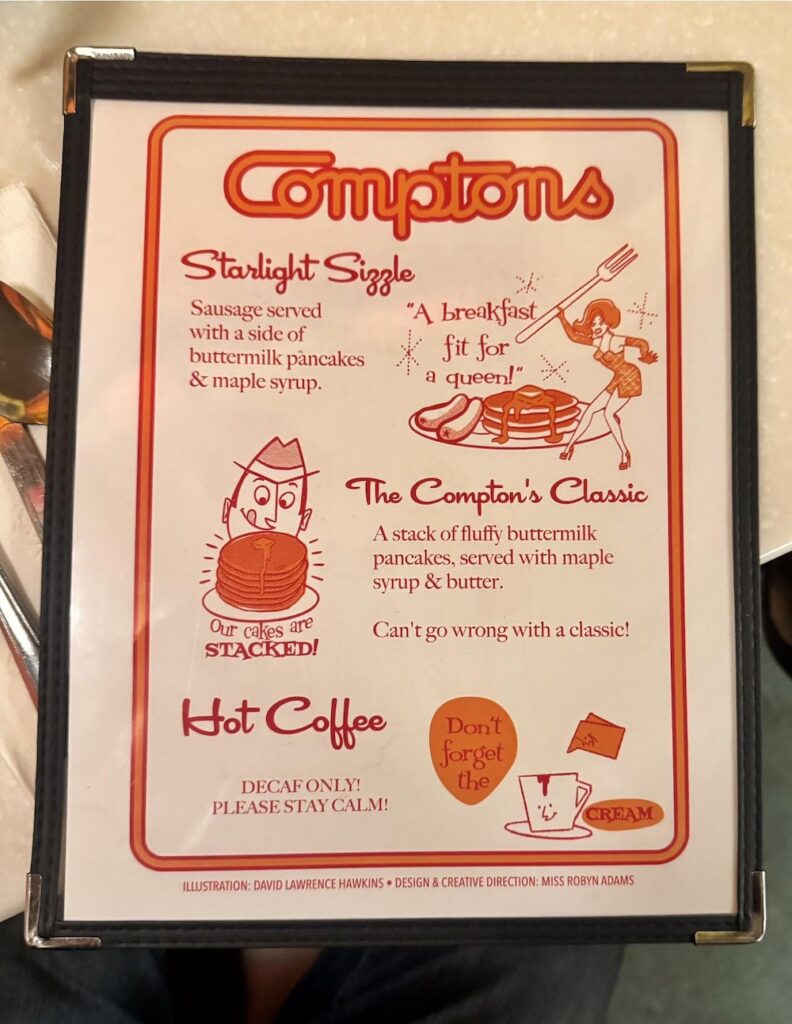 Comptons
Starlight Sizzle
Sausage served
with a side of
buttermilk pancakes
& maple syrup.
"A breakfast
fit for
a queen!"
The Compton's Classic
A stack of fluffy buttermilk
pancakes, served with maple
syrup & butter.
Can't go wrong with a classic!
Our cakes are
STACKED!
Hot Coffee
DECAF ONLY!
PLEASE STAY CALM!
Don't
forget
the
CREAM
ILLUSTRATION: DAVID LAWRENCE HAWKINS • DESIGN & CREATIVE DIRECTION: MISS ROBYN ADAMS